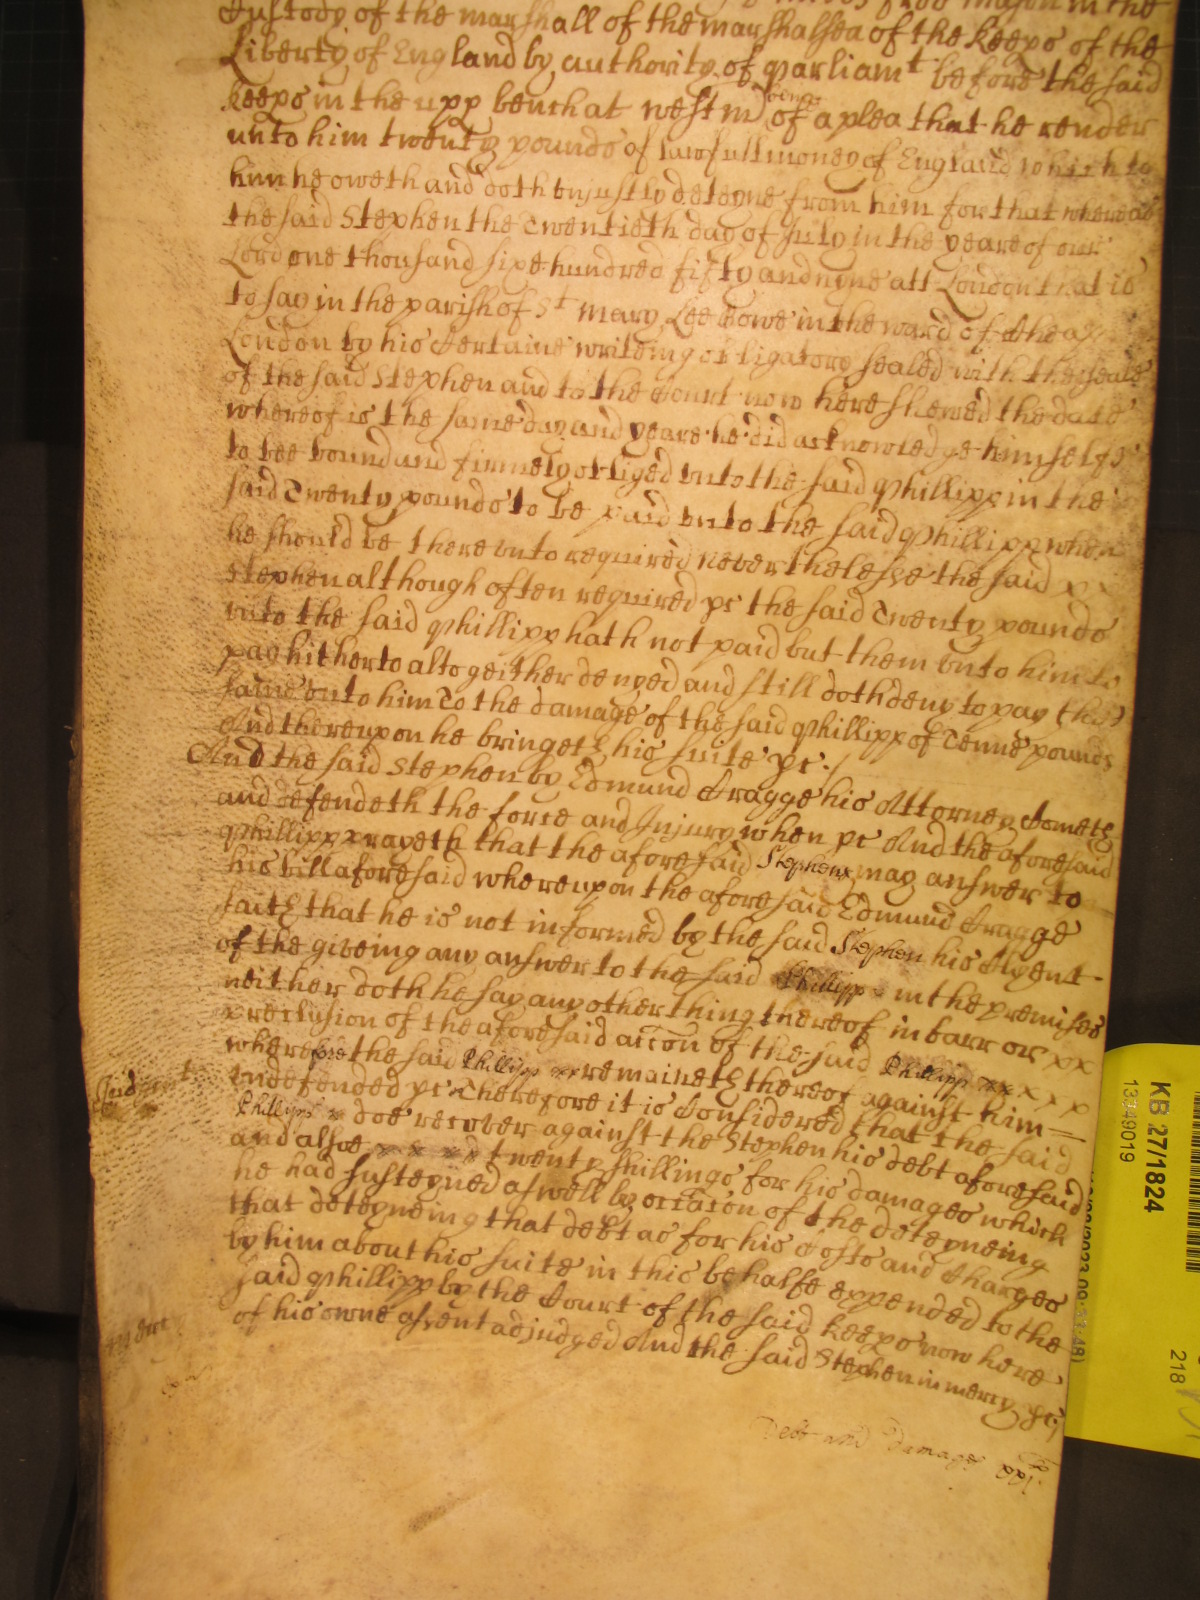 Custody of the marshall of the marshalsea of the keeps of the
Liberty of England by authority of Parliamt before the said
keeps in the upp bench at westm being of a plea that he render
unto him twenty pounds of lawfull money of England which to
him he oweth and doth vnjustly deteyne from him for that whereas
the said Stephen the Twentieth day of July in the yeare of our
Lord one thousand sixe hundred fifty and nyne att London that is
to say in the parish of St Mary Lee Bowe in the ward of Cheap
London by his Certaine writeing obligatory sealed with the seale
of the said Stephen and to the Court now here shewed the date
whereof is the same day and yeare he did acknowledge himselfe
to bee bound and firmely obliged vnto the said Phillipp in the
said Twenty pounds to be paid vnto the said Phillipp when
he should be there vnto required neverthelesse the said x x
Stephen although often required &c the said Twenty pounds
vnto the said Phillipp hath not paid but them vnto him to
pay hitherto altogeither denyed and still doth deny to pay the
same vnto him To the damage of the said Phillipp of Tenne pounds
And thereupon he bringeth his suite &c./
And the said Stephen by Edmund Cragge his Attorney Cometh
and defendeth the force and Injury when &c And the aforesaid
Phillipp prayeth that the aforesaid Stephen may answer to
his bill aforesaid whereupon the aforesaid Edmund Cragge
saith that he is not informed by the said Stephen his Clyent
of the giveing any answer to the said Phillipp in the premises
neither doth he say any other thing thereof in barr or x x
preclusion of the aforesaid accon of the said Phillipp x x x x
wherefore the said Phillipp x x remaineth thereof against him
vndefended &c Therefore it is Considered that the said
Judgment
Phillipp x doe recover against the Stephen his debt aforesaid
and alsoe x x x x twenty shillings for his damages which
he had susteyned aswell by occacon of the deteyneing
that deteyneing that debt as for his Costs and Charges
by him about his suite in this behalfe expended to the
said Phillipp by the Court of the said keeps now here
of his owne assent adjudged And the said Stephen in mercy &c
Debt and damages xxi li
KB 27/1824
13449019
218